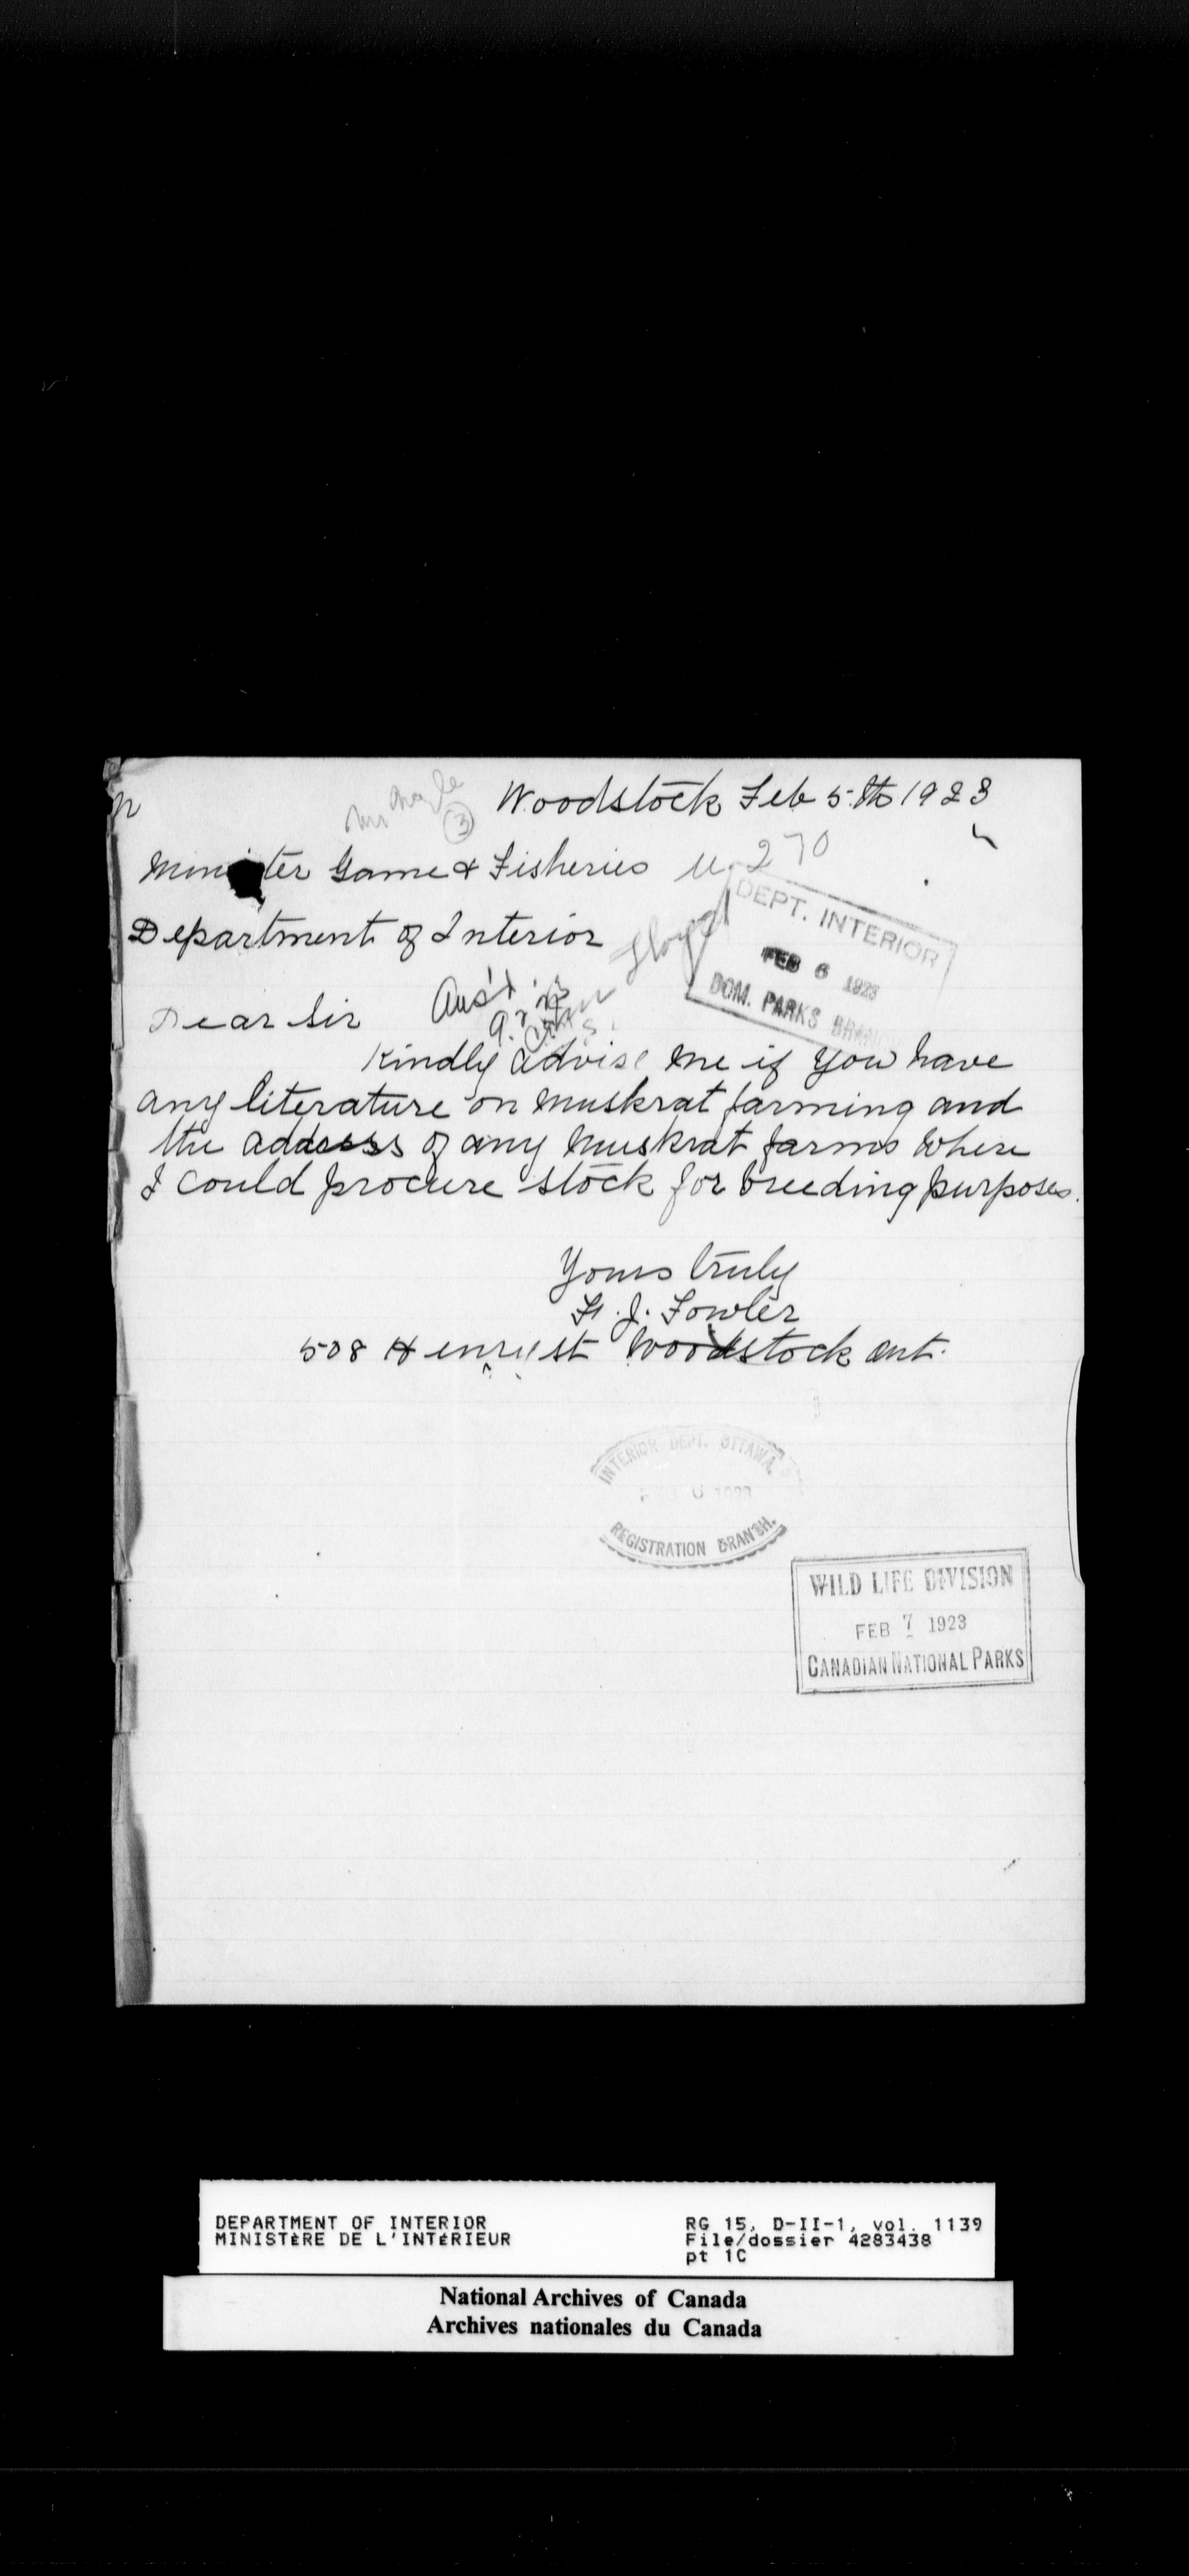 Woodstock Feb 5th 1923
3
U. 270
Minister Game & Fisheries
Department of Interior
Lloyd
DEPT. INTERIOR
FEB 6 1923
DOM. PARKS BRANCH
Ans'd
Dear Sir
Kindly advise me if you have
any literature on muskrat farming and
the address of any muskrat farms where
I could procure stock for breeding purposes.
Yours truly
F. J. Fowler
508 Henry st Woodstock Ont.
INTERIOR DEPT. OTTAWA.
6 1923
REGISTRATION BRANCH.
WILD LIFE DIVISION
FEB 7 1923
CANADIAN NATIONAL PARKS
DEPARTMENT OF INTERIOR
MINISTÈRE DE L'INTÉRIEUR
RG 15, D-II-1, vol. 1139
File/dossier 4283438
pt 1C
National Archives of Canada
Archives nationales du Canada